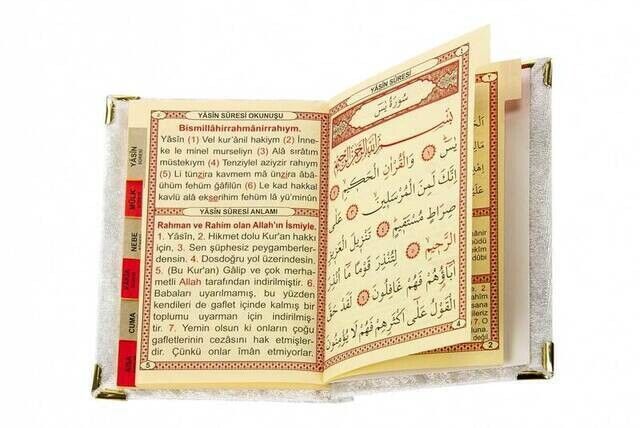 YÂSİN SÛRESİ OKUNUŞU
Bismillâhirrahmânirrahıym.
Yâsîn (1) Vel kur'ânil hakiym (2) İnne-
ke le minel murseliyn (3) Alâ sıratım
müstekıym (4) Tenziylel aziyzir rahıym
(5) Li tünzira kavmem mâ ünzira âbâ-
ühüm fehüm ğâfilûn (6) Le kad hakkal
kavlü alâ ekserihim fehüm lâ yü'minûn
YÂSİN SÛRESİ ANLAMI
Rahman ve Rahim olan Allah'ın İsmiyle.
1. Yâsîn, 2. Hikmet dolu Kur'an hakkı
için, 3. Sen şüphesiz peygamberler-
densin. 4. Dosdoğru yol üzerindesin.
5. (Bu Kur'an) Gâlip ve çok merha-
metli Allah tarafından indirilmiştir. 6.
Babaları uyarılmamış, bu yüzden
kendileri de gaflet içinde kalmış bir
toplumu uyarman için indirilmiş-
tir. 7. Yemin olsun ki onların çoğu
gafletlerinin cezasını hak etmişler-
dir. Çünkü onlar îman etmiyorlar.
5
YÂSİN
MÜLK
NEBE
CUMA
YÂSİN SÛRESİ
سُورَةُ يٰسٓ
بِسْمِ اللّٰهِ الرَّحْمٰنِ الرَّحِيمِ
يٰسٓ ﴿١﴾ وَالْقُرْاٰنِ الْحَكِيمِ ﴿٢﴾
اِنَّكَ لَمِنَ الْمُرْسَلِينَ ﴿٣﴾ عَلٰى
صِرَاطٍ مُسْتَقِيمٍ ﴿٤﴾ تَنْزِيلَ الْعَزِيزِ
الرَّحِيمِ ﴿٥﴾ لِتُنْذِرَ قَوْمًا مَٓا اُنْذِرَ
اٰبَٓاؤُ۬هُمْ فَهُمْ غَافِلُونَ ﴿٦﴾ لَقَدْ حَقَّ
الْقَوْلُ عَلٰٓى اَكْثَرِهِمْ فَهُمْ لَا يُؤْمِنُونَ
4
2